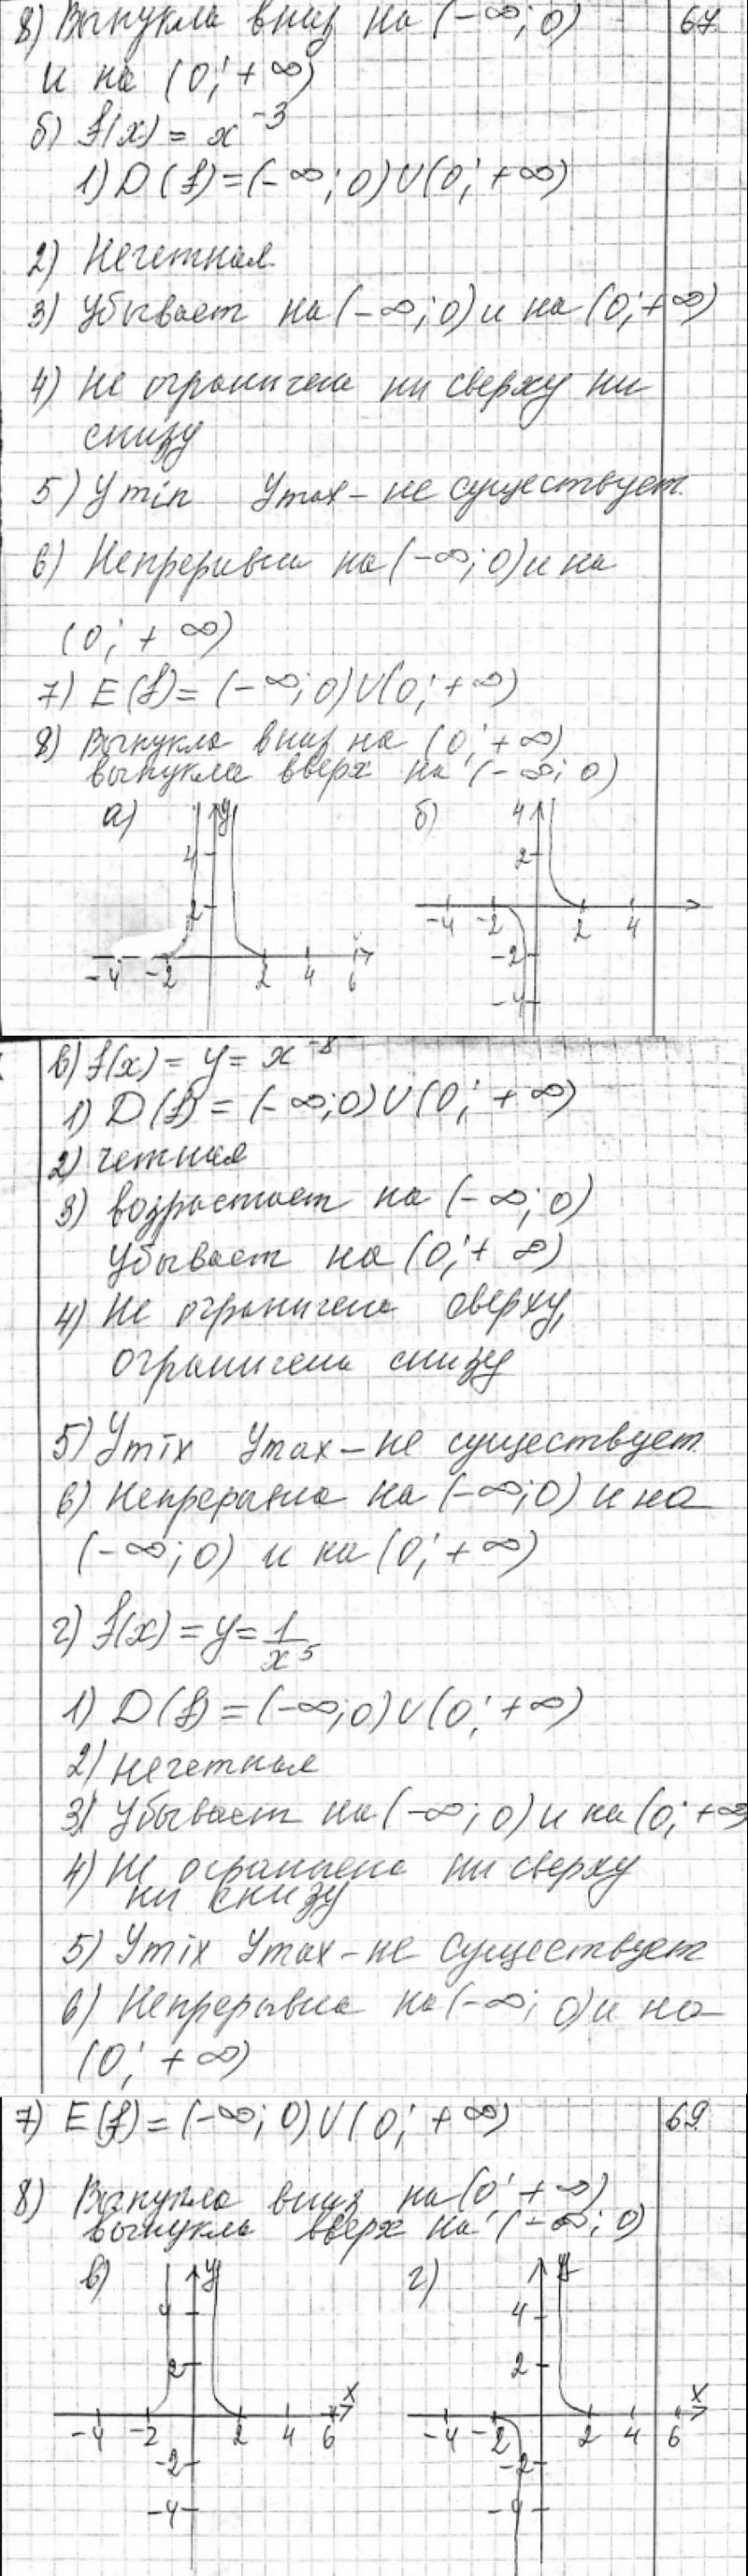 8) Выпукла вниз на (-∞; 0) 67.
и на (0; +∞)
б) f(x) = x⁻³
1) D(f) = (-∞; 0) U (0; +∞)
2) Нечетная
3) Убывает на (-∞; 0) и на (0; +∞)
4) Не ограничена ни сверху ни
снизу
5) Ymin Ymax - не существует.
6) Непреривна на (-∞; 0) и на
(0; +∞)
7) E(f) = (-∞; 0) U (0; +∞)
8) Выпукла вниз на (0; +∞)
выпукла вверх на (-∞; 0)
а) y
4
2
-4 -2 2 4 6
б) 4
2
-4 -2 2 4
-2
-4
в) f(x) = y = x⁻⁸
1) D(f) = (-∞; 0) U (0; +∞)
2) четная
3) возрастает на (-∞; 0)
Убывает на (0; +∞)
4) Не ограничена сверху,
ограничена снизу
5) Ymix Ymax - не существует.
6) Непрерывна на (-∞; 0) и на
(-∞; 0) и на (0; +∞)
г) f(x) = y = 1/x⁵
1) D(f) = (-∞; 0) U (0; +∞)
2) нечетная
3) Убывает на (-∞; 0) и на (0; +∞
4) Не ограничена ни сверху
ни снизу
5) Ymix Ymax - не существует
6) Непрерывна на (-∞; 0) и на
(0; +∞)
7) E(f) = (-∞; 0) U (0; +∞) 69.
8) Выпукла вниз на (0; +∞)
выпукла вверх на (-∞; 0)
в) y
4
2
x
-4 -2 2 4 6
-2
-4
г) y
4
2
x
-4 -2 2 4 6
-2
-4